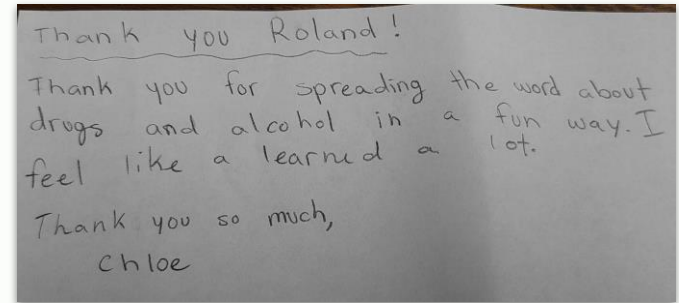 Thank you Roland!
Thank you for spreading the word about
drugs and alcohol in a fun way. I
feel like a learned a lot.
Thank you so much,
Chloe